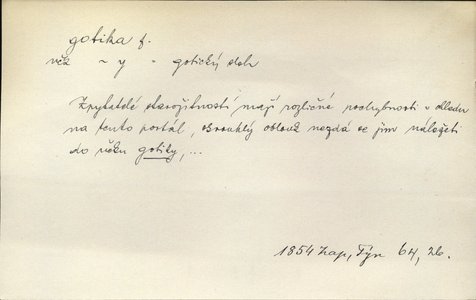 gotika f.
věk ~ y - gotický sloh
Zpytatelé starožitností mají rozličné pochybnosti v ohledu
na tento portál, okrouhlý oblouk nezdá se jim náležeti
do věku gotiky, ...
1854 Zap, Týn 64, 26.